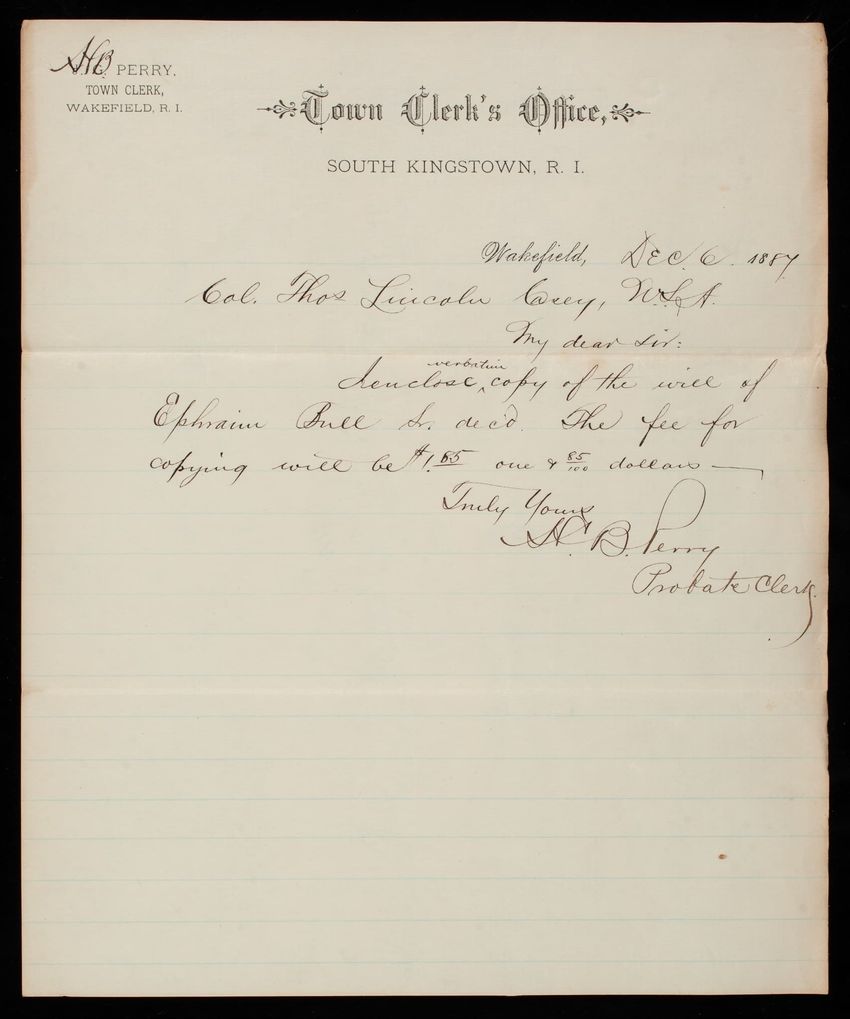 H B PERRY,
TOWN CLERK,
WAKEFIELD, R. I.
Town Clerk's Office,
SOUTH KINGSTOWN, R. I.
Wakefield, DEC. 6. 1887
Col. Thos Lincoln Casey, U.S.A.
My dear Sir:
verbatim
I enclose ^ copy of the will of
Ephraim Bull Sr. dec'd. The fee for
copying will be $1.85 one & 85/100 dollars —
Truly Yours
H. B. Perry
Probate Clerk.